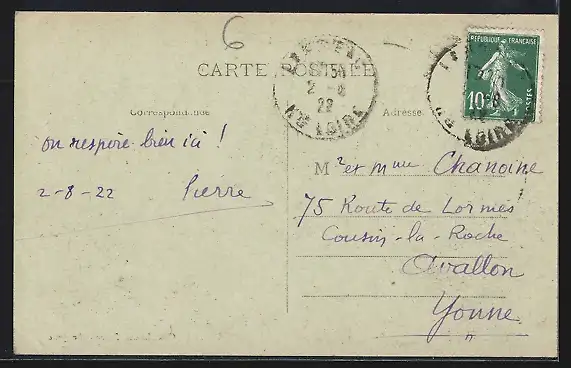 6
CARTE POSTALE
RÉPUBLIQUE FRANÇAISE
10c
POSTES
2-8
22
Hte LOIRE
Correspondance
Adresse
on respire bien ici !
2-8-22 Pierre
Mr et Mme Chanoine
75 Route de Lormes
Cousin-la-Roche
Avallon
Yonne